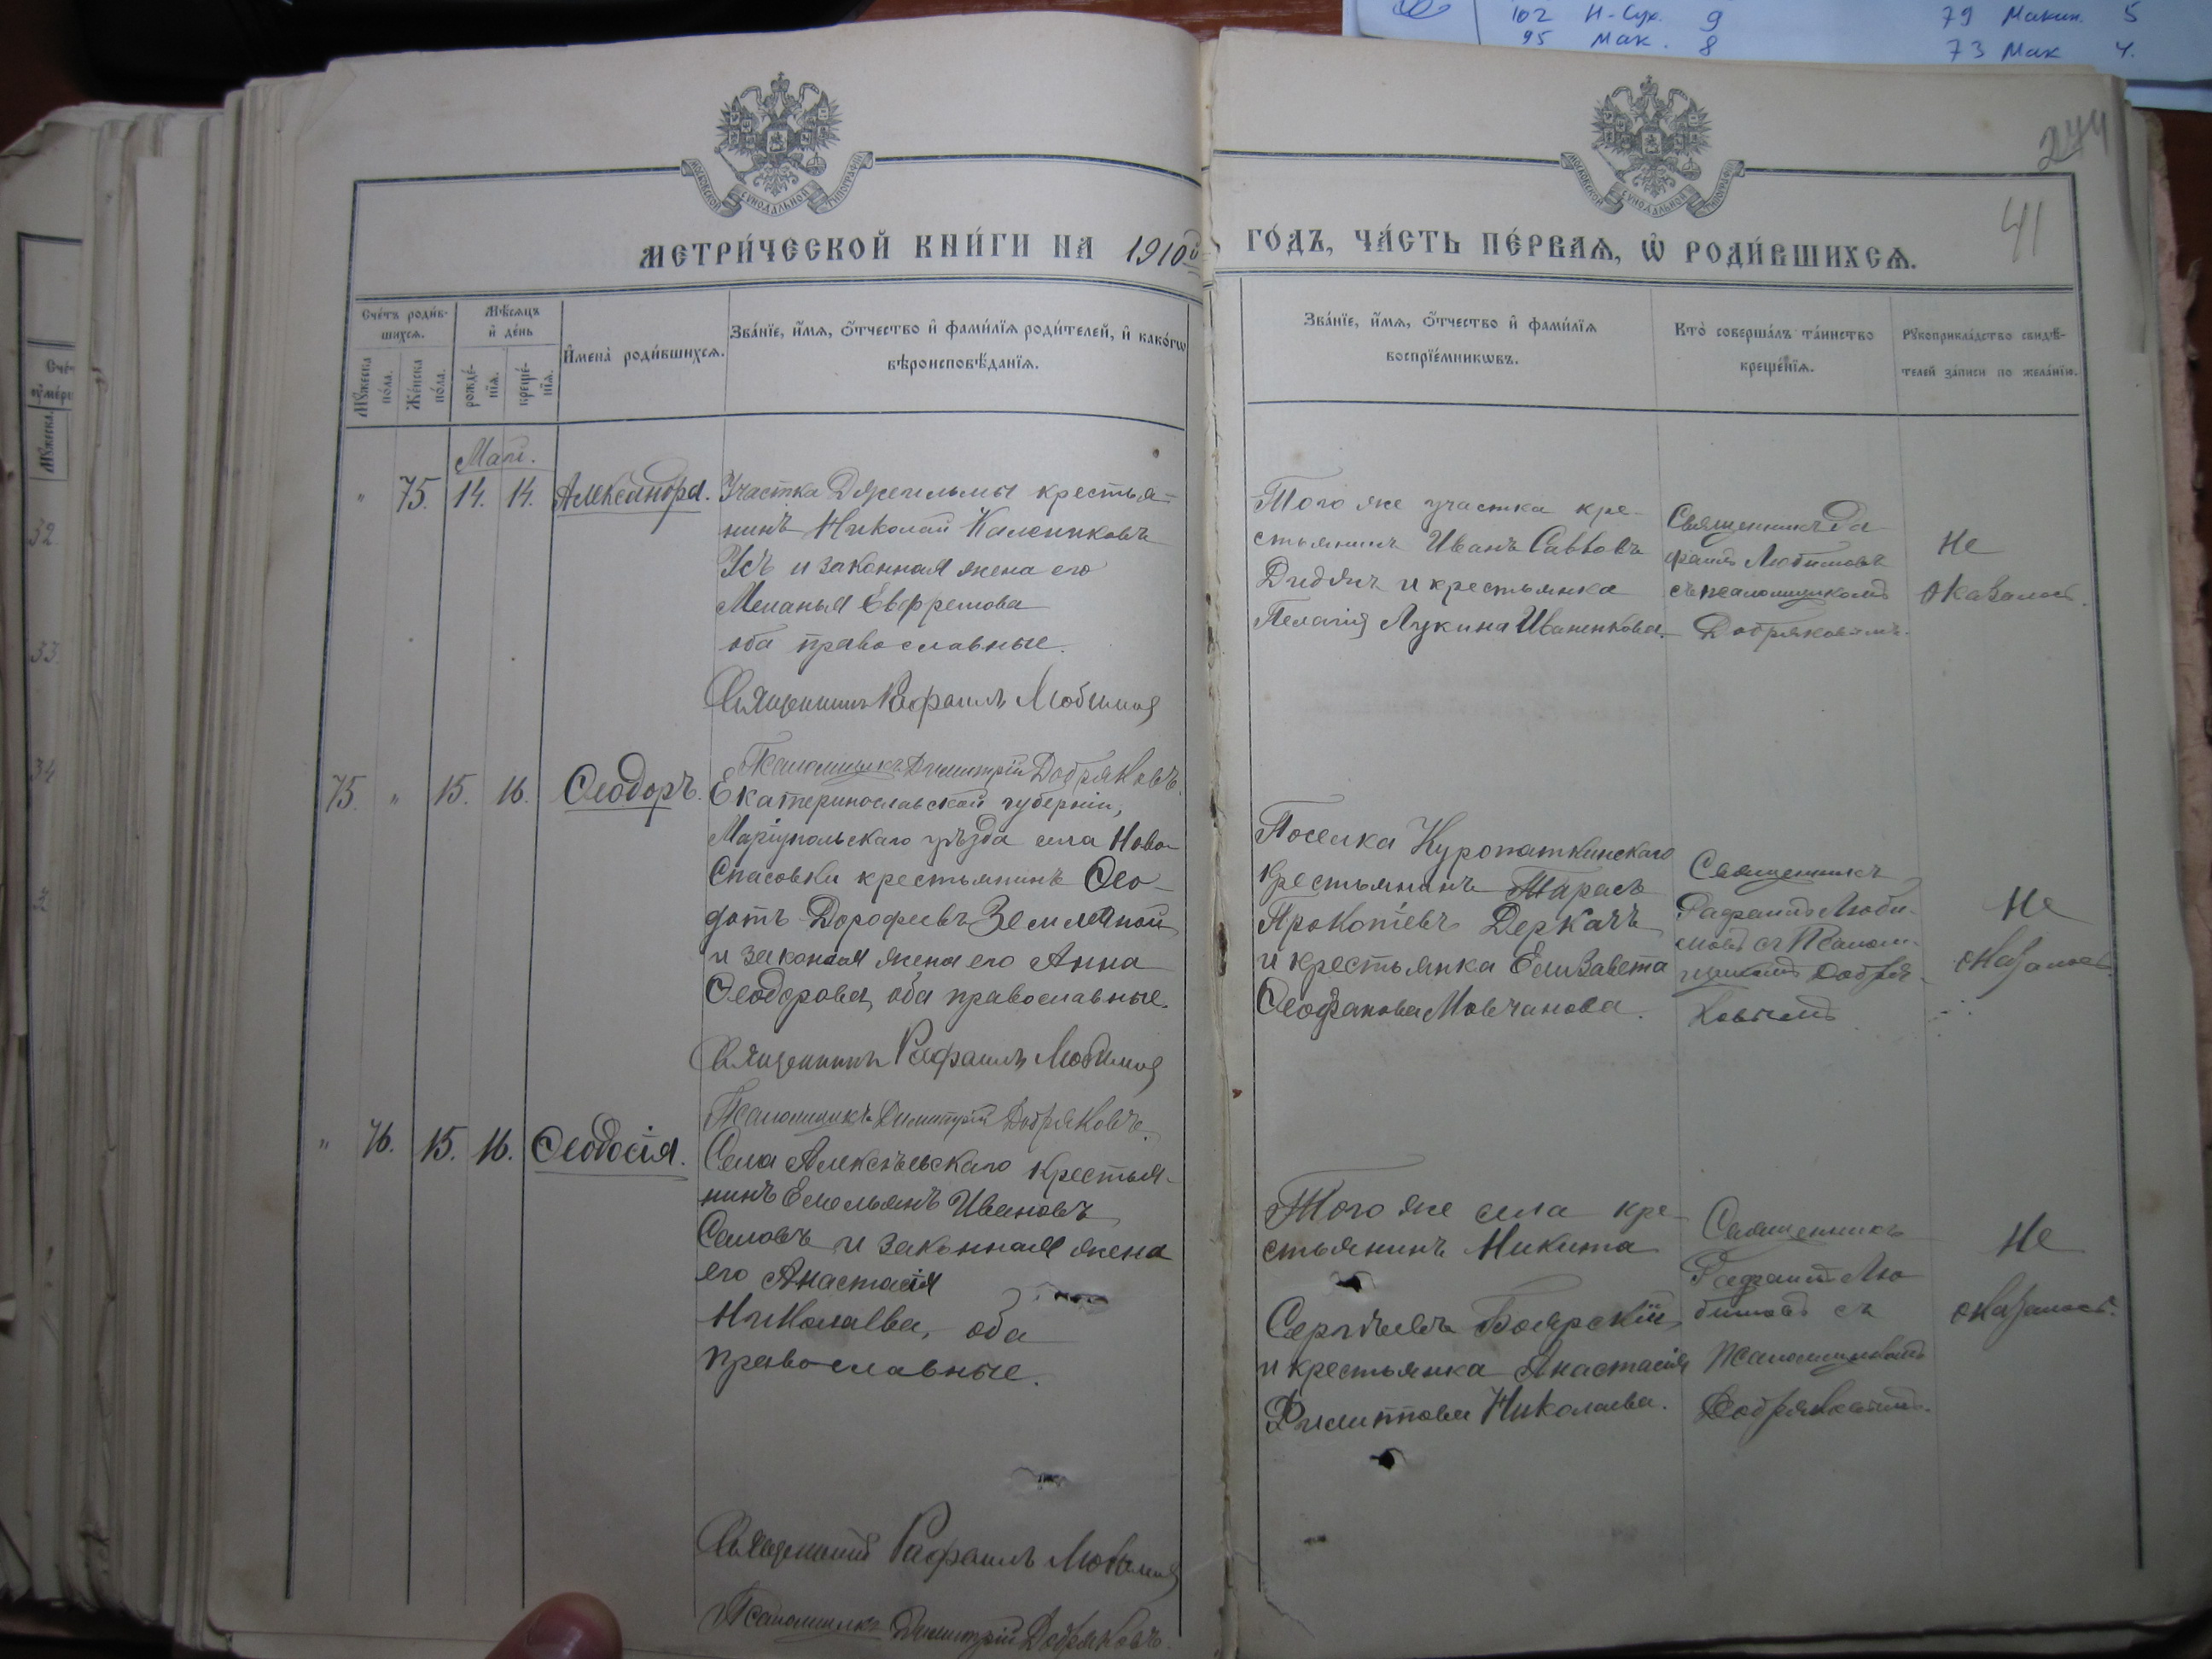 102 Н-Сух. 9
95 Мак. 8
79 Макин. 5
73 Мак 4.
244
41
МОСКОВСКОЙ СѴНОДАЛЬНОЙ ТИПОГРАФІИ
МОСКОВСКОЙ СѴНОДАЛЬНОЙ ТИПОГРАФІИ
МЕТРИ́ЧЕСКОЙ КНИ́ГИ НА 1910й ГО́ДЪ, ЧА́СТЬ ПЕ́РВАѦ, Ѡ҆ РОДИ́ВШИХСѦ.
Сче́тъ роди́в-
шихсѧ.
Мꙋ́жеска
по́ла.
Же́нска
по́ла.
Мѣ́сѧцъ
и҆ де́нь
рожде́-
нїѧ.
креще́-
нїѧ.
И҆мена̀ роди́вшихсѧ.
Зва́нїе, и҆́мѧ, ѻ҆́тчество и҆ фами́лїѧ роди́телей, и҆ како́гѡ
вѣроисповѣ́данїѧ.
Зва́нїе, и҆́мѧ, ѻ҆́тчество и҆ фами́лїѧ
воспрїе́мникѡвъ.
Кто̀ соверша́лъ та́инство
креще́нїѧ.
Рꙋкоприкла́дство свидѣ́-
телей за́писи по жела́нїю.
Май.
" 75. 14. 14. Александра.
Участка Джегильмы крестья-
нинъ Николай Калениковъ
Усъ и законная жена его
Меланья Евфремова
оба православные.
Священникъ Рафаилъ Любимов
Псаломщикъ Димитрій Добряковъ.
Того же участка кре-
стьянинъ Иванъ Савовъ
Дидякъ и крестьянка
Пелагія Лукина Иваненкова.
Священникъ Ра
фаилъ Любимовъ
съ псаломщикомъ
Добряковымъ.
Не
оказалось.
75. " 15. 16. Ѳеодоръ.
Екатеринославской губерніи,
Маріупольскаго уѣзда села Ново-
Спасовки крестьянинъ Ѳео-
дотъ Дорофеевъ Землякой
и законая жена его Анна
Ѳеодорова, оба православные.
Священникъ Рафаилъ Любимов
Псаломщикъ Димитрій Добряковъ.
Поселка Куропаткинскаго
крестьянинъ Тарасъ
Прокопіевъ Деркачъ
и крестьянка Елизавета
Ѳеофанова Мовчанова.
Священникъ
Рафаилъ Люби-
мовъ съ Псалом-
щикомъ Добря-
ковымъ
Не
оказалось.
" 76. 15. 16. Ѳеодосія.
Села Алексѣевскаго крестья-
нинъ Емельянъ Ивановъ
Саловъ и законная жена
его Анастасія
Николаева, оба
православные.
Священникъ Рафаилъ Любимов
Псаломщикъ Димитрій Добряковъ.
Того же села кре-
стьянинъ Никита
Сергѣевъ Боярскій
и крестьянка Анастасія
Филиппова Николаева.
Священникъ
Рафаилъ Лю
бимовъ съ
Псаломщикомъ
Добряковымъ.
Не
оказалось.
32.
33.
34